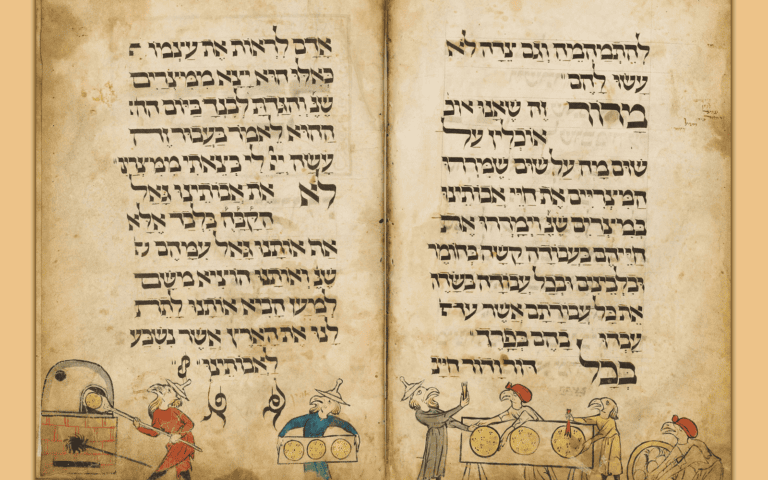 להתמהמה וגם צדה לא
עשו להם
מרור זה שאנו אוכ
אוכלין על
שום מה על שום שמררו
המצריים את חיי אבותינו
במצרים שנ וימררו את
חייהם בעבודה קשה בחומר
ובלבינים ובכל עבודה בשדה
את כל עבודתם אשר
עבדו בהם בפרך
בכל דור ודור חייב
אדם לראות את עצמו
כאלו הוא יצא ממצרים
שנ והגדת לבנך ביום
ההוא לאמר בעבור זה
עשה לי בצאתי ממצרים
לא את אבותינו גאל
הקבה בלבד אלא
אף אותנו גאל עמהם
שנ ואותנו הוציא משם
למען הביא אותנו לתת
לנו את הארץ אשר נשבע
לאבותינו